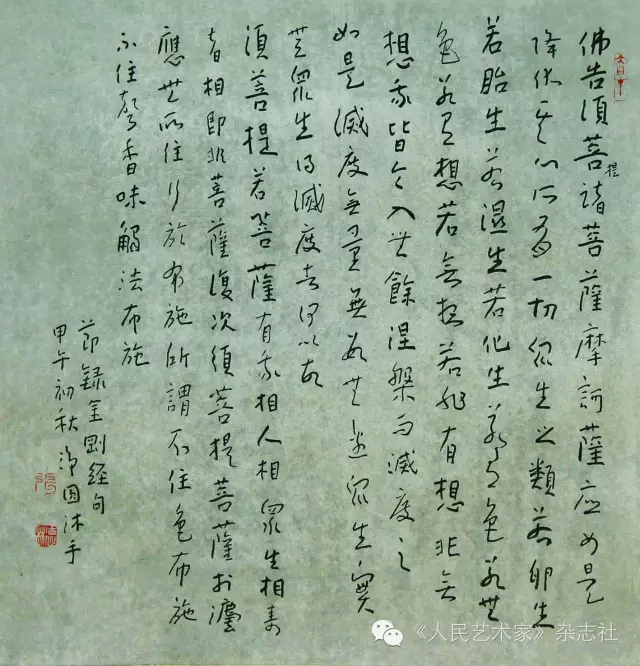 佛告須菩提諸菩薩摩訶薩應如是
降伏其心所有一切眾生之類若卵生
若胎生若濕生若化生若有色若無
色若有想若無想若非有想非無
想我皆令入無餘涅槃而滅度之
如是滅度無量無數無邊眾生實
無眾生得滅度者何以故
須菩提若菩薩有我相人相眾生相壽
者相即非菩薩復次須菩提菩薩於灋
應無所住行於布施所謂不住色布施
不住聲香味觸法布施
節錄金剛經句
甲午初秋淨因沐手
《人民艺术家》杂志社